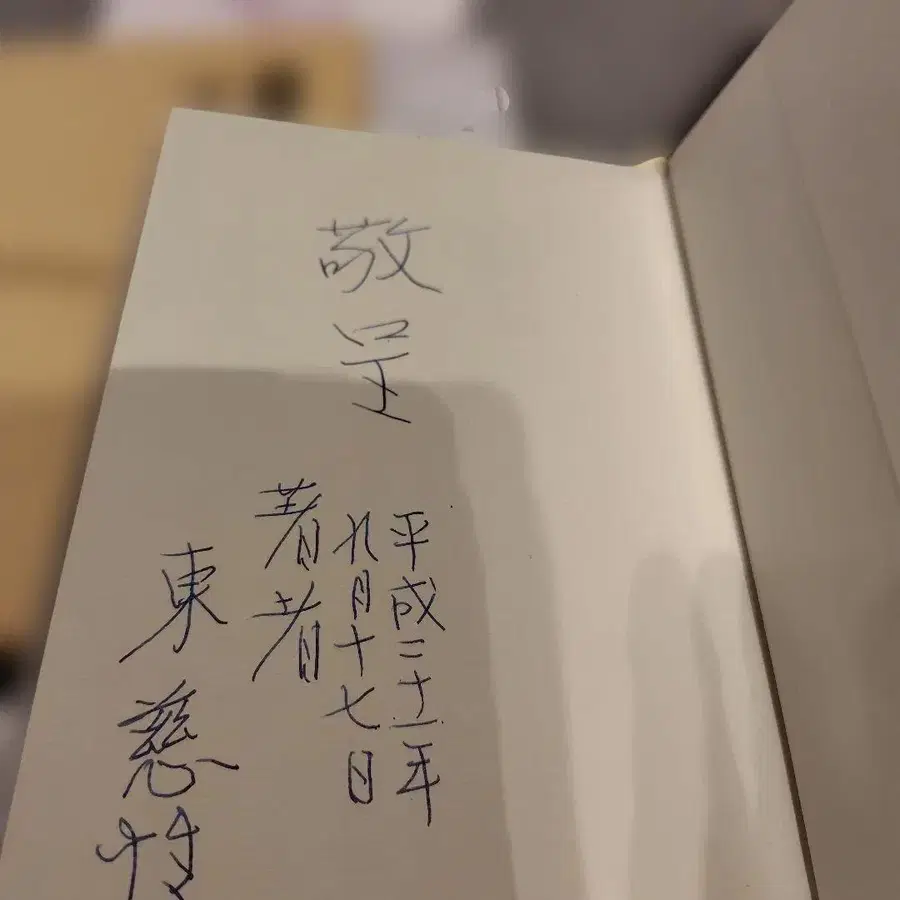 敬呈
平成二十一年
九月十七日
著者
東慈